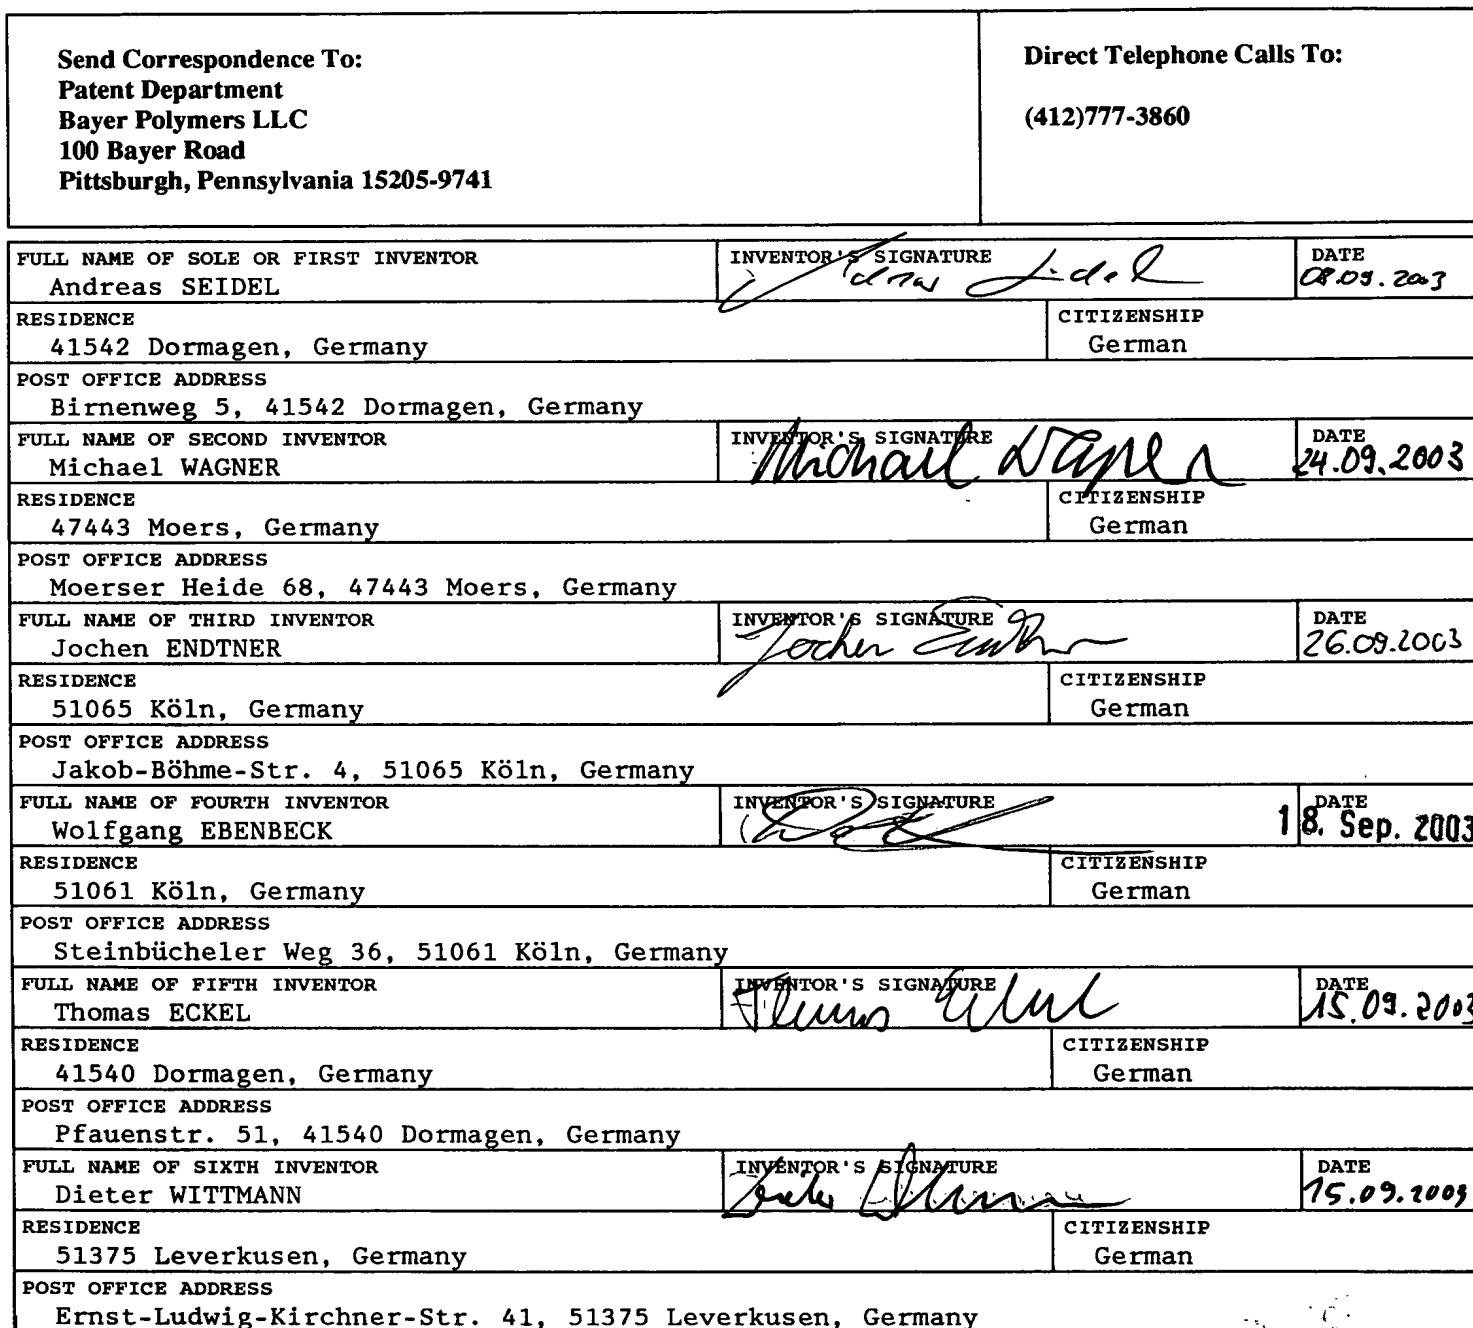 Send Correspondence To:
Patent Department
Bayer Polymers LLC
100 Bayer Road
Pittsburgh, Pennsylvania 15205-9741
Direct Telephone Calls To:
(412)777-3860
FULL NAME OF SOLE OR FIRST INVENTOR
Andreas SEIDEL
INVENTOR'S SIGNATURE
DATE
08.09.2003
RESIDENCE
41542 Dormagen, Germany
CITIZENSHIP
German
POST OFFICE ADDRESS
Birnenweg 5, 41542 Dormagen, Germany
FULL NAME OF SECOND INVENTOR
Michael WAGNER
INVENTOR'S SIGNATURE
Michael Wagner
DATE
24.09.2003
RESIDENCE
47443 Moers, Germany
CITIZENSHIP
German
POST OFFICE ADDRESS
Moerser Heide 68, 47443 Moers, Germany
FULL NAME OF THIRD INVENTOR
Jochen ENDTNER
INVENTOR'S SIGNATURE
Jochen Endtner
DATE
26.09.2003
RESIDENCE
51065 Köln, Germany
CITIZENSHIP
German
POST OFFICE ADDRESS
Jakob-Böhme-Str. 4, 51065 Köln, Germany
FULL NAME OF FOURTH INVENTOR
Wolfgang EBENBECK
INVENTOR'S SIGNATURE
DATE
18. Sep. 2003
RESIDENCE
51061 Köln, Germany
CITIZENSHIP
German
POST OFFICE ADDRESS
Steinbücheler Weg 36, 51061 Köln, Germany
FULL NAME OF FIFTH INVENTOR
Thomas ECKEL
INVENTOR'S SIGNATURE
Thomas Eckel
DATE
15.09.2003
RESIDENCE
41540 Dormagen, Germany
CITIZENSHIP
German
POST OFFICE ADDRESS
Pfauenstr. 51, 41540 Dormagen, Germany
FULL NAME OF SIXTH INVENTOR
Dieter WITTMANN
INVENTOR'S SIGNATURE
DATE
15.09.2003
RESIDENCE
51375 Leverkusen, Germany
CITIZENSHIP
German
POST OFFICE ADDRESS
Ernst-Ludwig-Kirchner-Str. 41, 51375 Leverkusen, Germany